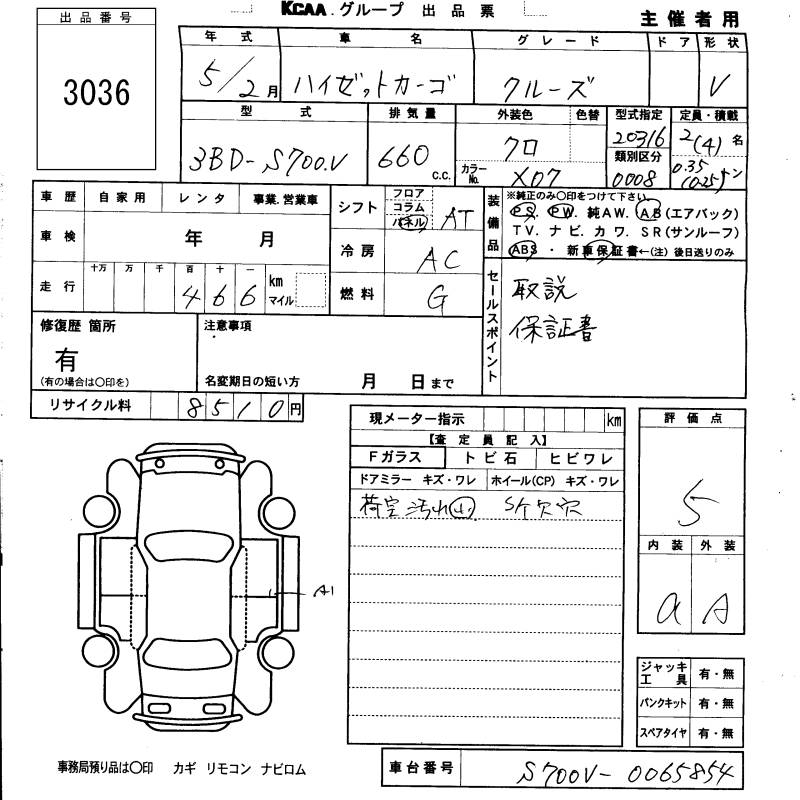 KCAA.グループ 出品票
主催者用
出品番号
3036
年式 車名 グレード ドア 形状
5/2月 ハイゼットカーゴ クルーズ V
型式 排気量 外装色 色替 型式指定 定員・積載
3BD-S700V 660 c.c. クロ 20316 2(4)名
カラーNo. X07 類別区分 0008 0.35(0.25)トン
車歴 自家用 レンタ 事業.営業車
シフト フロア コラム パネル AT
装備品 ※純正のみ〇印をつけて下さい
PS. PW. 純AW. AB(エアバック)
TV. ナビ. カワ. SR(サンルーフ)
ABS ・ 新車保証書←(注)後日送りのみ
車検 年 月
冷房 AC
走行 十万 万 千 百 十 一
466 km マイル
燃料 G
セールスポイント
取説
保証書
修復歴 箇所
有
(有の場合は〇印を)
注意事項
名変期日の短い方 月 日まで
リサイクル料 8510円
現メーター指示 km
【査定員記入】
Fガラス トビ石 ヒビワレ
ドアミラー キズ・ワレ ホイール(CP) キズ・ワレ
荷室汚れ小. S/k欠穴
評価点
5
内装 外装
a A
A1
ジャッキ工具 有・無
パンクキット 有・無
スペアタイヤ 有・無
事務局預り品は〇印 カギ リモコン ナビロム
車台番号 S700V-0065854